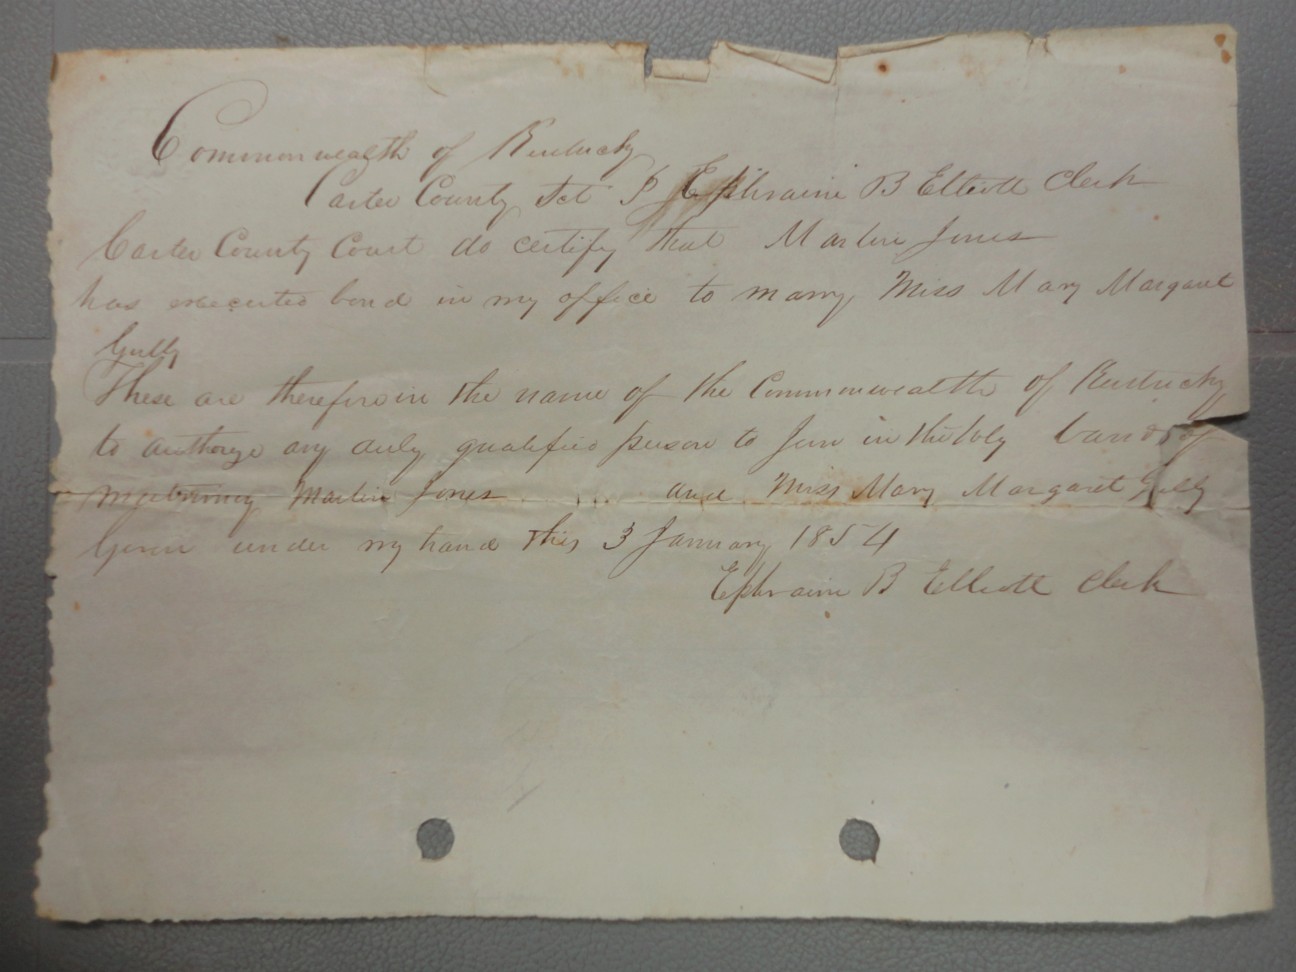 Commonwealth of Kentucky
Carter County Sct I Ephraim B Elliott Clerk
Carter County Court do certify that Martin Jones
has executed bond in my office to marry Miss Mary Margaret
These are therefore in the name of the Commonwealth of Kentucky
to authorze any duly qualified person to Join in the holy bands of
Martin Jones and Miss Mary Margaret
Given under my hand this 3 January 1854
Ephraim B Elliott Clerk